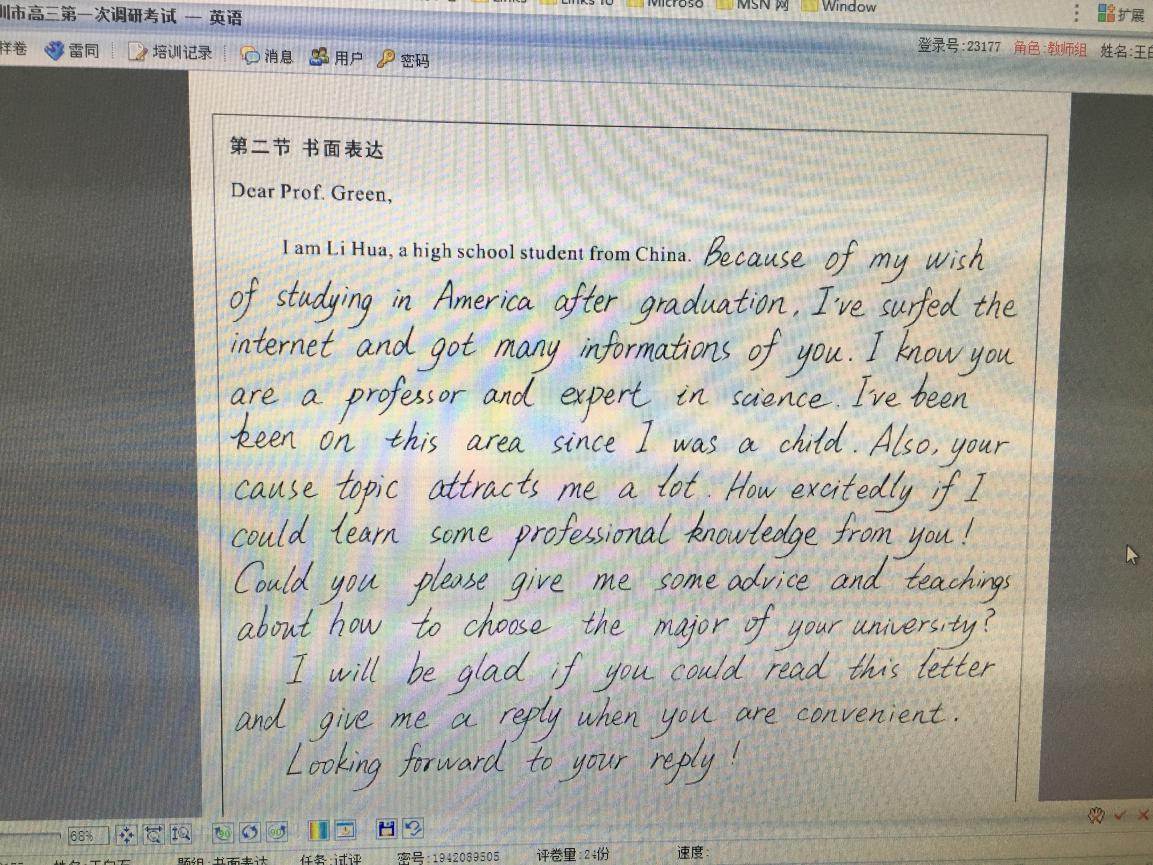 Links
Links to
Microso
MSN 网
Window
圳市高三第一次调研考试 — 英语
扩展
样卷 雷同 培训记录 消息 用户 密码
登录号:23177 角色:教师组 姓名:王
第二节 书面表达
Dear Prof. Green,
I am Li Hua, a high school student from China. Because of my wish
of studying in America after graduation, I've surfed the
internet and got many informations of you. I know you
are a professor and expert in science. I've been
keen on this area since I was a child. Also, your
cause topic attracts me a lot. How excitedly if I
could learn some professional knowledge from you!
Could you please give me some advice and teachings
about how to choose the major of your university?
I will be glad if you could read this letter
and give me a reply when you are convenient.
Looking forward to your reply!
68%
题组:书面表达 任务:试评 密号:1942089505 评卷量:24份 速度: